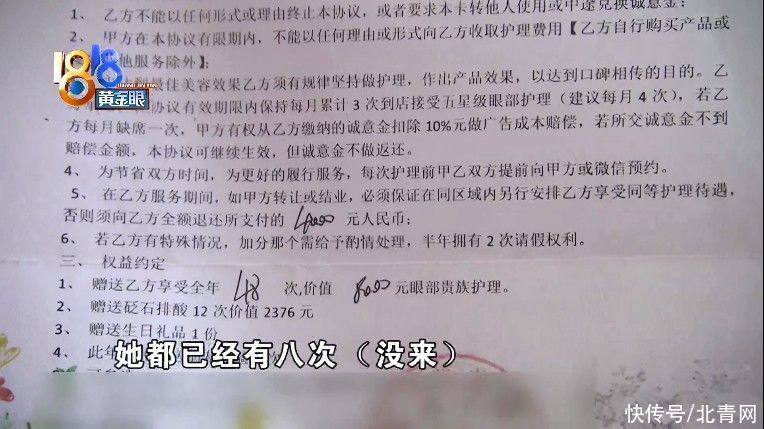 1、 乙方不能以任何形式或理由终止本协议，或者要求本卡转他人使用或中途兑换诚意金；
2、 甲方在本协议有限期内，不能以任何理由或形式向乙方收取护理费用【乙方自行购买产品或
他服务除外】；
最佳美容效果乙方须有规律坚持做护理，作出产品效果，以达到口碑相传的目的。乙
协议有效期限内保持每月累计 3 次到店接受五星级眼部护理（建议每月 4 次），若乙
方每月缺席一次，甲方有权从乙方缴纳的诚意金扣除 10%元做广告成本赔偿，若所交诚意金不到
赔偿金额，本协议可继续生效，但诚意金不做返还。
4、 为节省双方时间，为更好的履行服务，每次护理前甲乙双方提前向甲方或微信预约。
5、 在乙方服务期间，如甲方转让或结业，必须保证在同区域内另行安排乙方享受同等护理待遇，
否则须向乙方全额退还所支付的 元人民币；
6、 若乙方有特殊情况，加分那个需给予酌情处理，半年拥有 2 次请假权利。
三、 权益约定
1、 赠送乙方享受全年 48 次,价值 8000 元眼部贵族护理。
2、 赠送砭石排酸 12 次价值 2376 元
3、 赠送生日礼品 1 份
4、 此年
1818
黄金眼
她都已经有八次（没来）
快传号/北青网